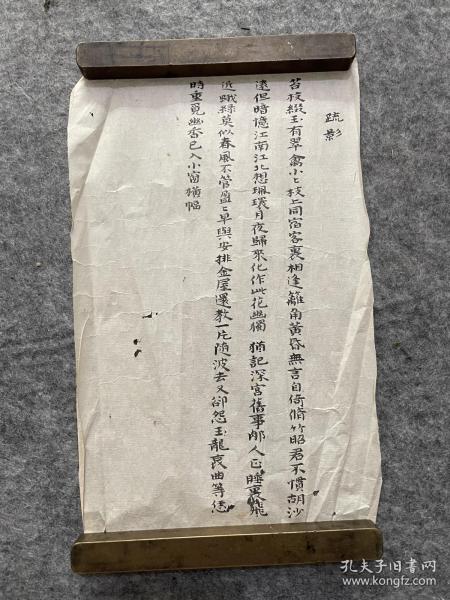 疏影
苔枝綴玉有翠禽小〻枝上同宿客裏相逢籬角黃昏無言自倚脩竹昭君不慣胡沙
遠但暗憶江南江北想珮環月夜歸來化作此花幽獨 猶記深宮舊事那人正睡裏飛
近蛾綠莫似春風不管盈〻早與安排金屋還教一片隨波去又卻怨玉龍哀曲等恁
時重覓幽香已入小窗橫幅
孔夫子旧书网
www.kongfz.com